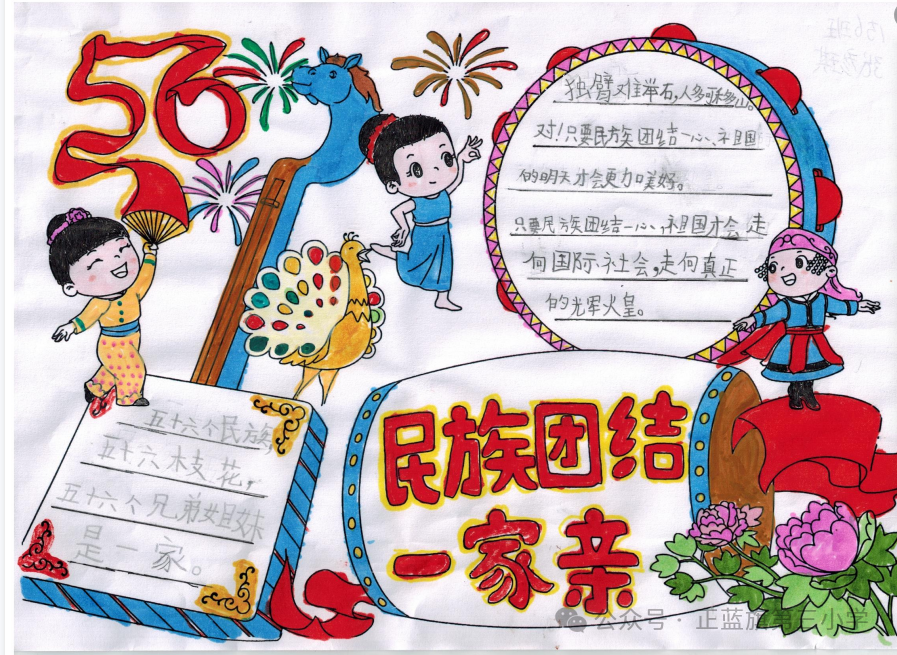 56
独臂难举石,人多可移山。
对!只要民族团结一心、祖国
的明天才会更加美好。
只要民族团结一心、祖国才会走
向国际社会,走向真正
的辉煌。
五十六个民族,
五十六枝花,
五十六个兄弟姐妹
是一家。
民族团结
一家亲
公众号·正蓝旗第三小学